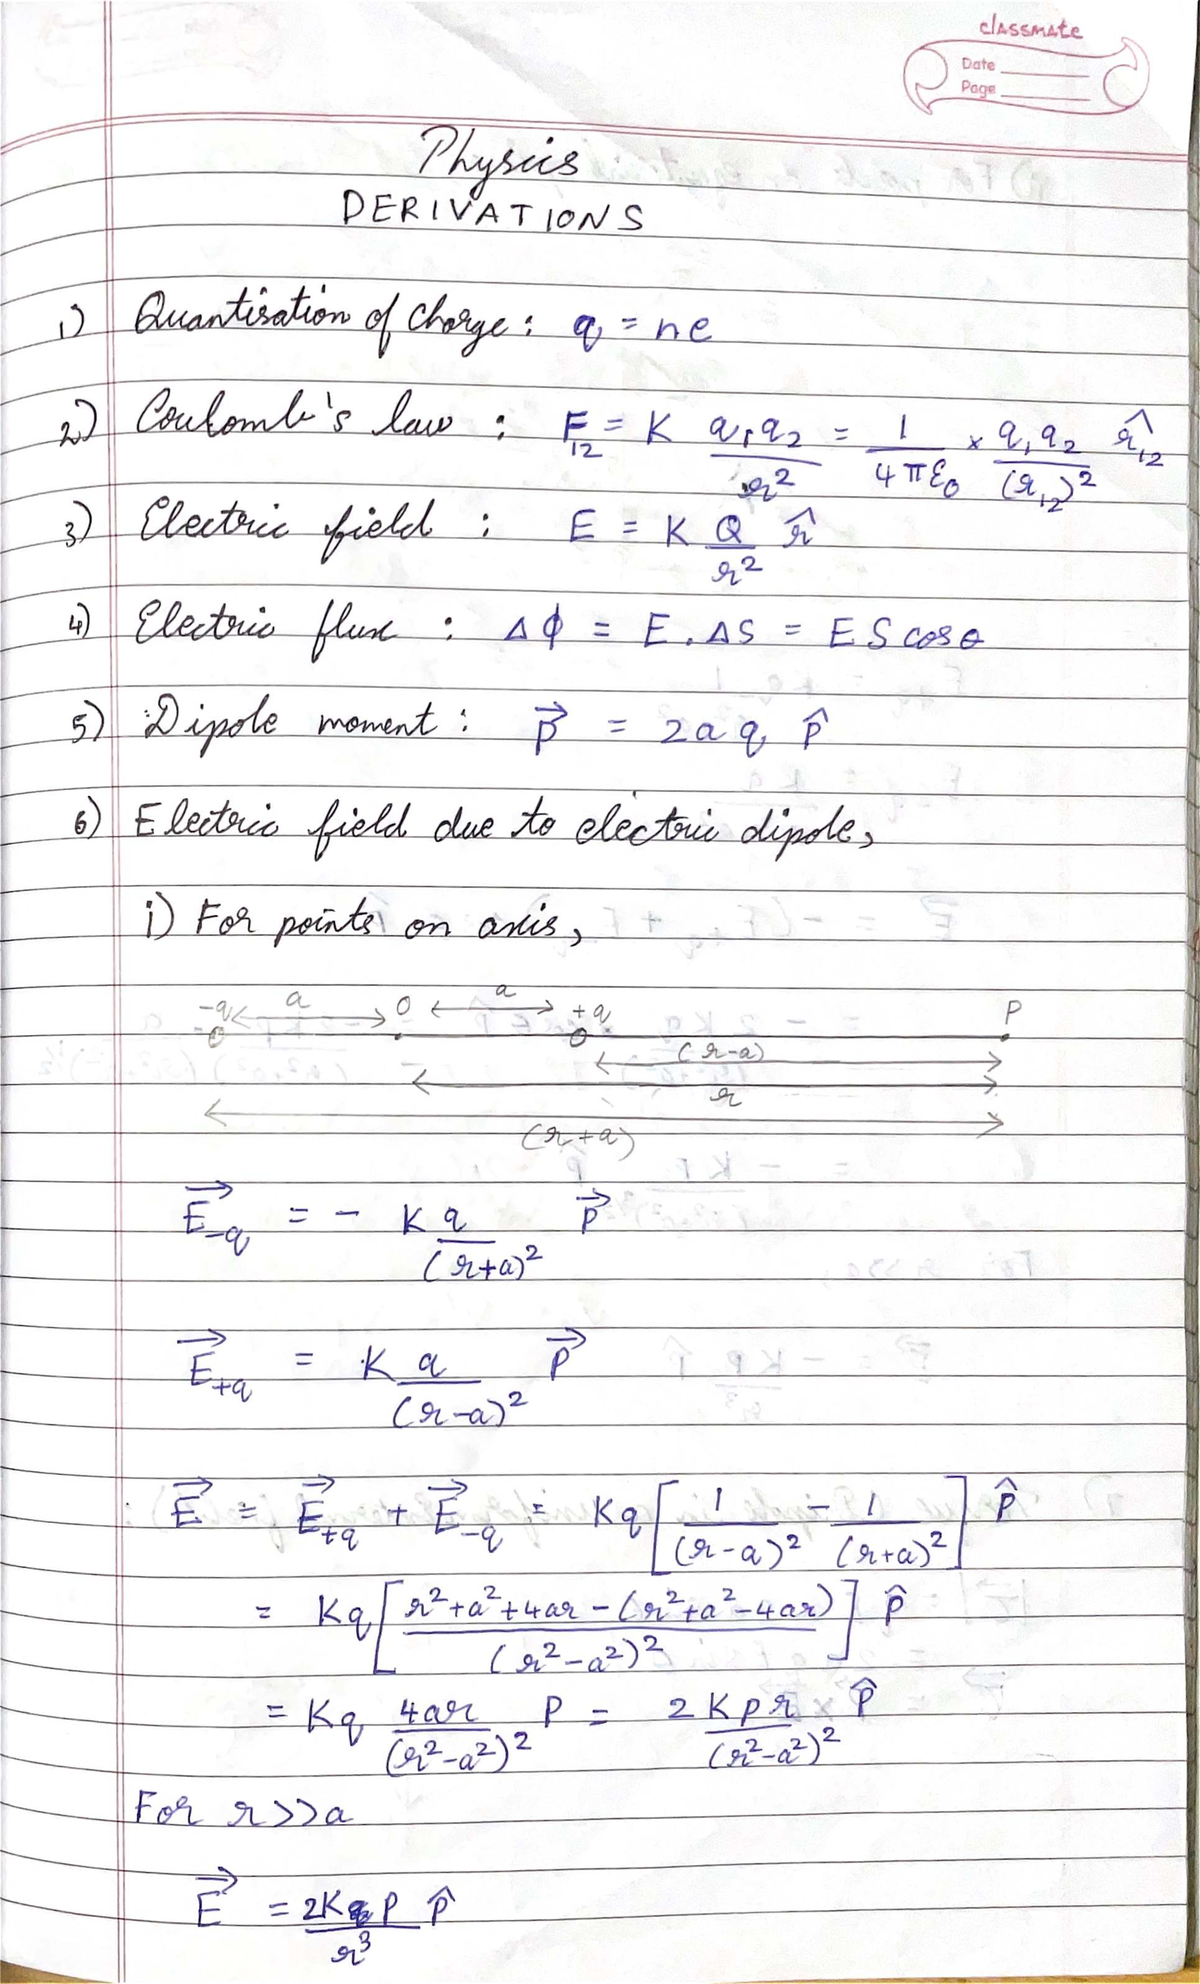 classmate
Date
Page
Physics
DERIVATIONS
1) Quantisation of Charge : q = ne
2) Coulomb's law : F₁₂ = K q₁q₂/r² = 1/4πε₀ × q₁q₂/(r₁₂)² r̂₁₂
3) Electric field : E = K Q/r² r̂
4) Electric flux : Δϕ = E . ΔS = E S cos θ
5) Dipole moment : p⃗ = 2a q p̂
6) Electric field due to electric dipole,
i) For points on axis,
-q a O a +q P
(r-a)
r
(r+a)
E⃗₋q = - K q/(r+a)² p⃗
E⃗₊q = K q/(r-a)² p⃗
E⃗ = E⃗₊q + E⃗₋q = Kq [1/(r-a)² - 1/(r+a)²] p̂
= Kq [r²+a²+4ar-(r²+a²-4ar)/(r²-a²)²] p̂
= Kq 4ar/(r²-a²)² P = 2Kpr/(r²-a²)² p̂
For r>>a
E⃗ = 2K p/r³ p̂